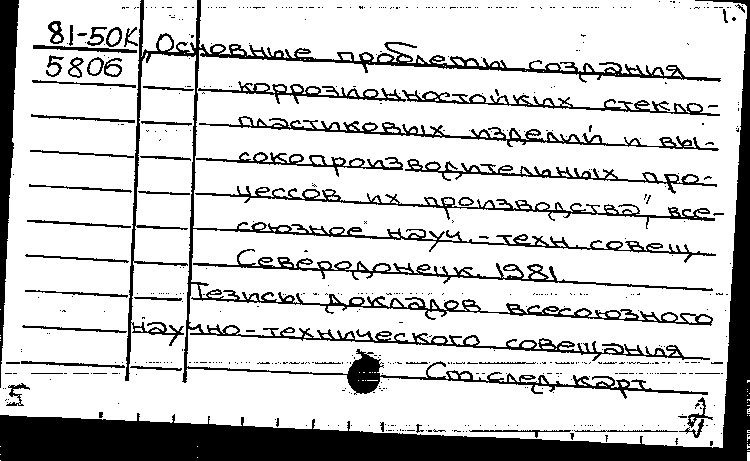 1.
81-50К „Основные проблемы создания
5806 коррозионностойких стекло-
пластиковых изделий и вы-
сокопроизводительных про-
цессов их производства", все-
союзное науч.-техн. совещ.
Северодонецк. 1981.
Тезисы докладов всесоюзного
научно-технического совещания
См. след. карт.
5